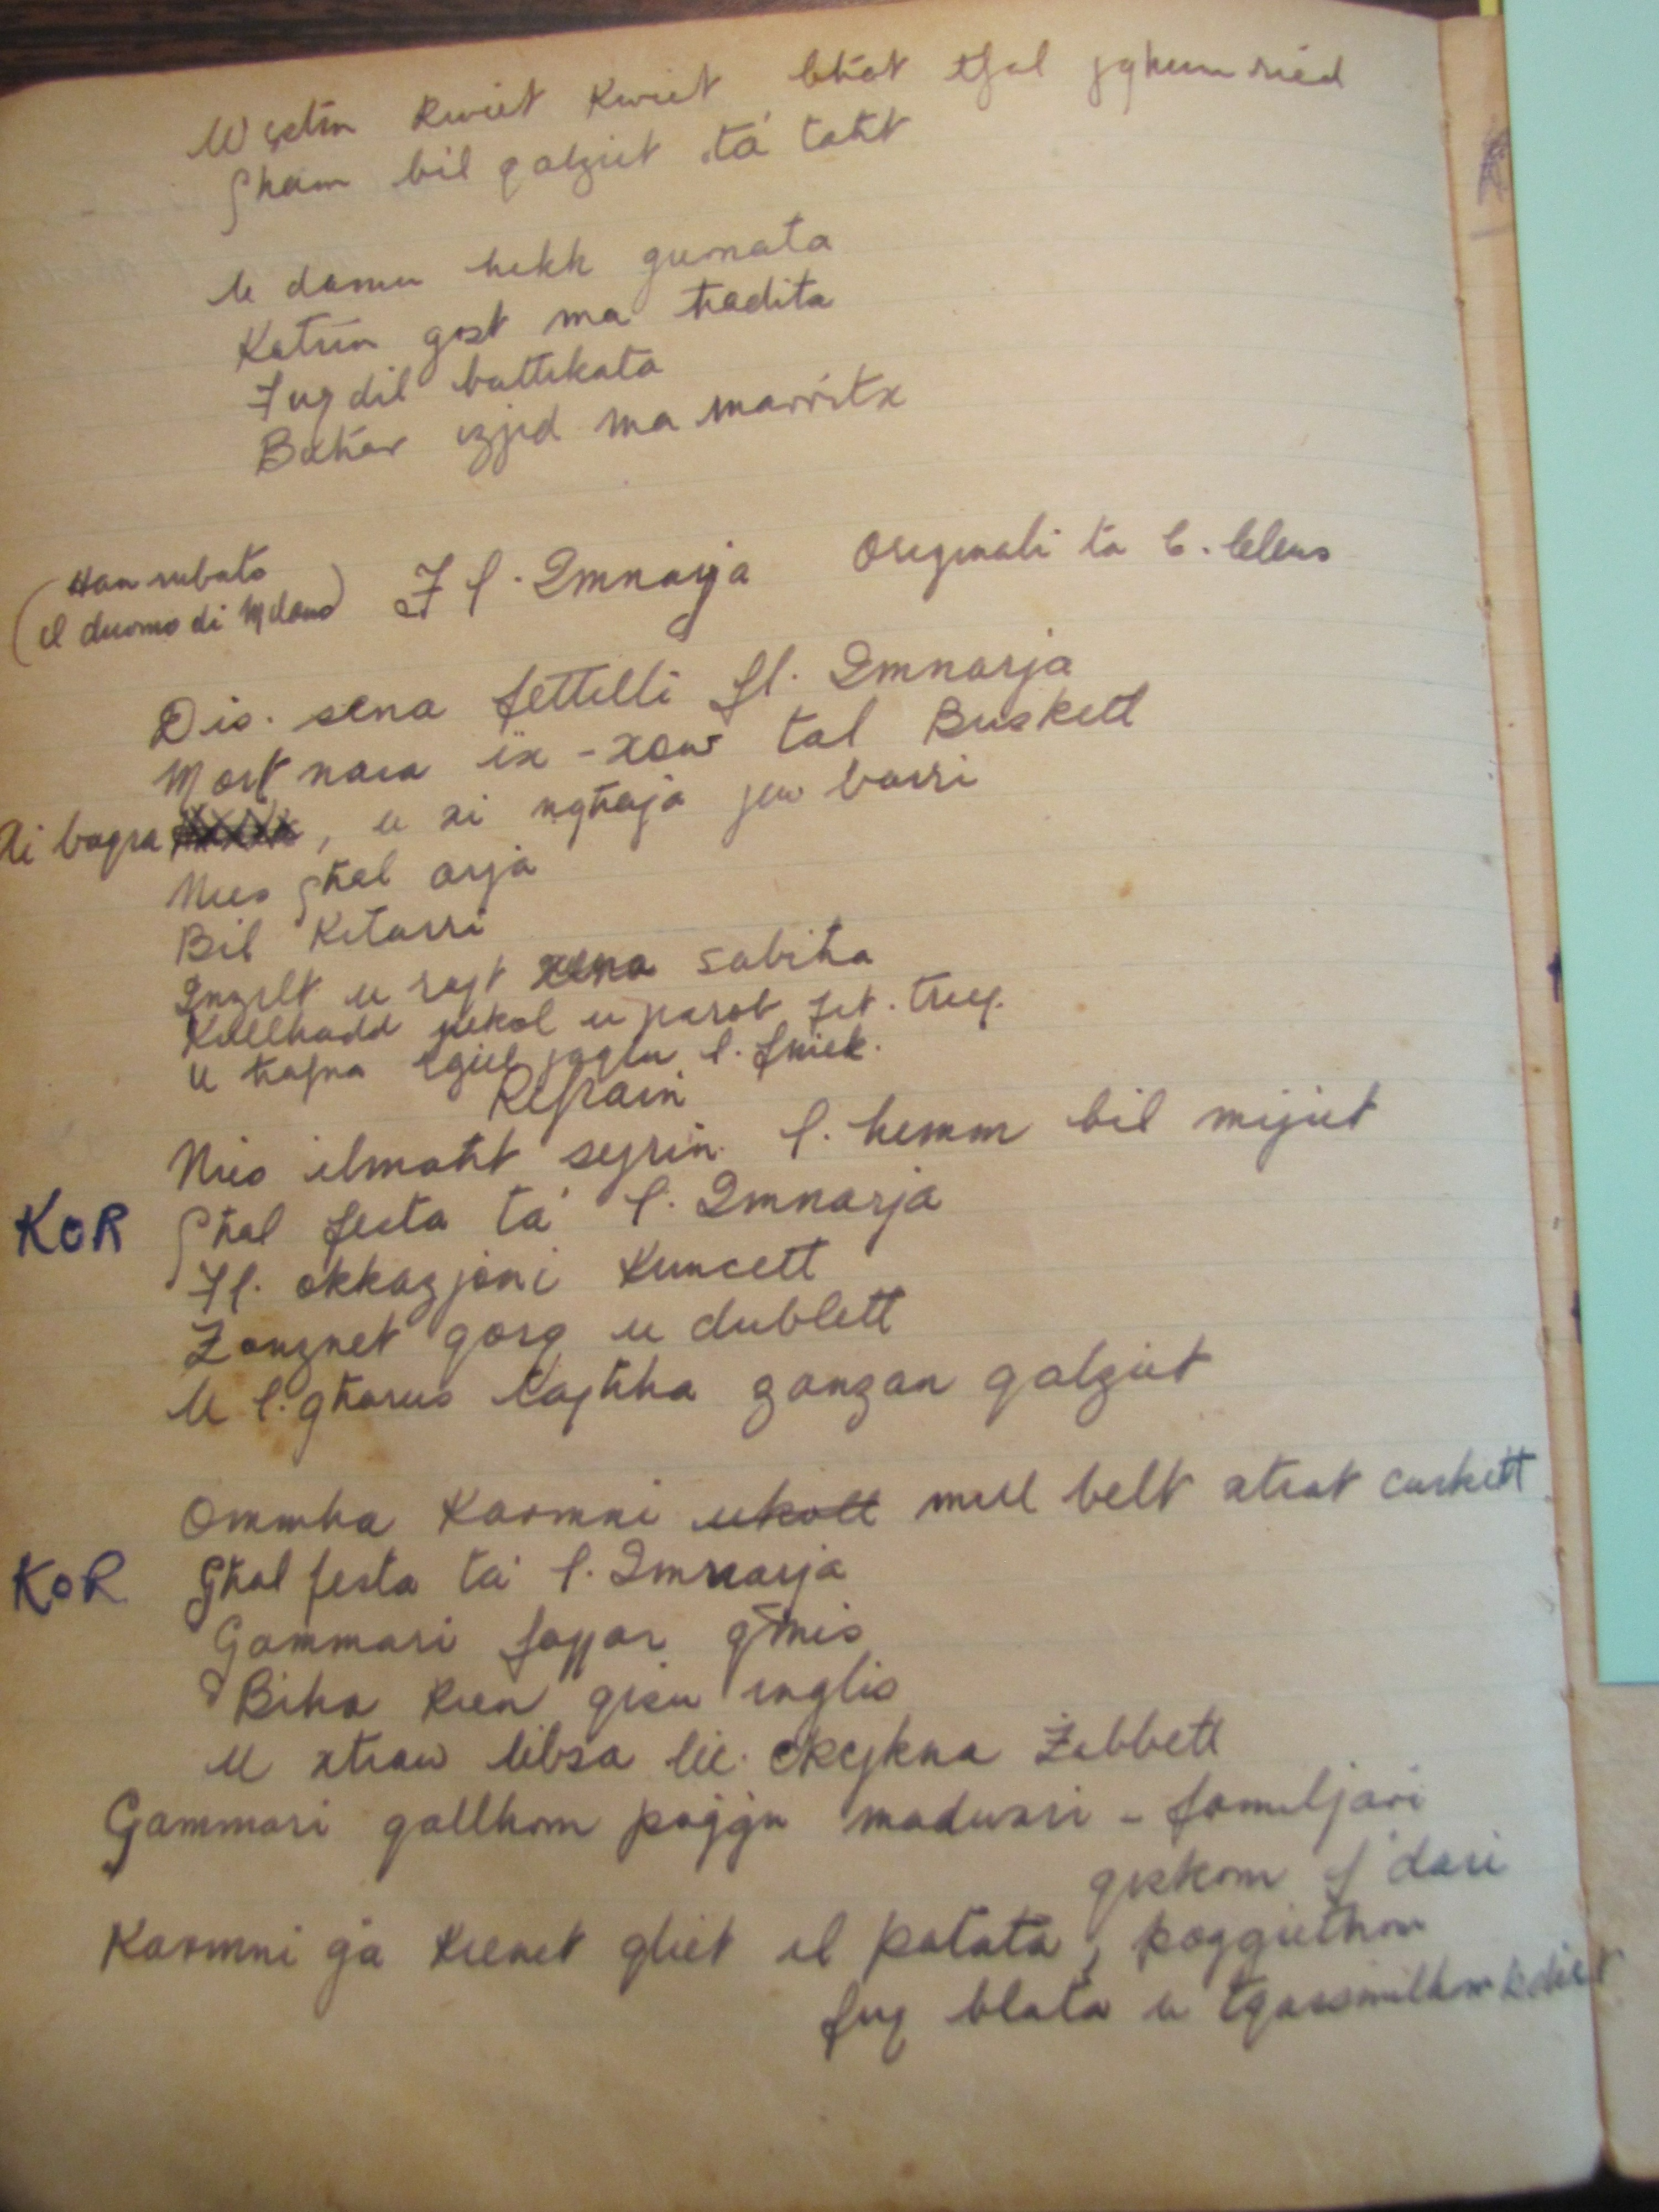 kwiet kwiet bħat tfal
Għam bil qalziet tá taħt
U damu hekk gurnata
Katrin gost ma ħadita
Fuq dil battikata
Baħar izjed ma marritx
(Han rubato
il duomo di Milano)
F l. Imnarja Originali ta C. Clews
Dis. sena fettilli fl. Imnarja
Mort nara ix-xow tal Buskett
Xi bagra, u xi ngħaja jew barri
Nies għal arja
Bil Kitarri
Inzilt u rajt xena sabiħa
Kullħadd jiekol u jixrob fit. triq.
U ħafna egiel jaqlu l. fniek.
Refrain
Nies ilmaħt sejrin l. hemm bil mijiet
KOR Għal festa tá l. Imnarja
Fl. okkazjoni Kuncett
Zanznet gorg u dublett
U l. għarus tagħha zanzan qalziet
Ommha Karmni mill belt xtrat caskett
KOR Għal festa tá l. Imnarja
Gammari fajjar qmis
Biha kien qisu inglis
U xtraw libsa lic. Ckejkna Żabbett
Gammari qallhom poġġu madwari - familjari
qiskom f'dari
Karmni ġa kienet qliet il patata, poggiethom
fuq blata u tqassmilhom